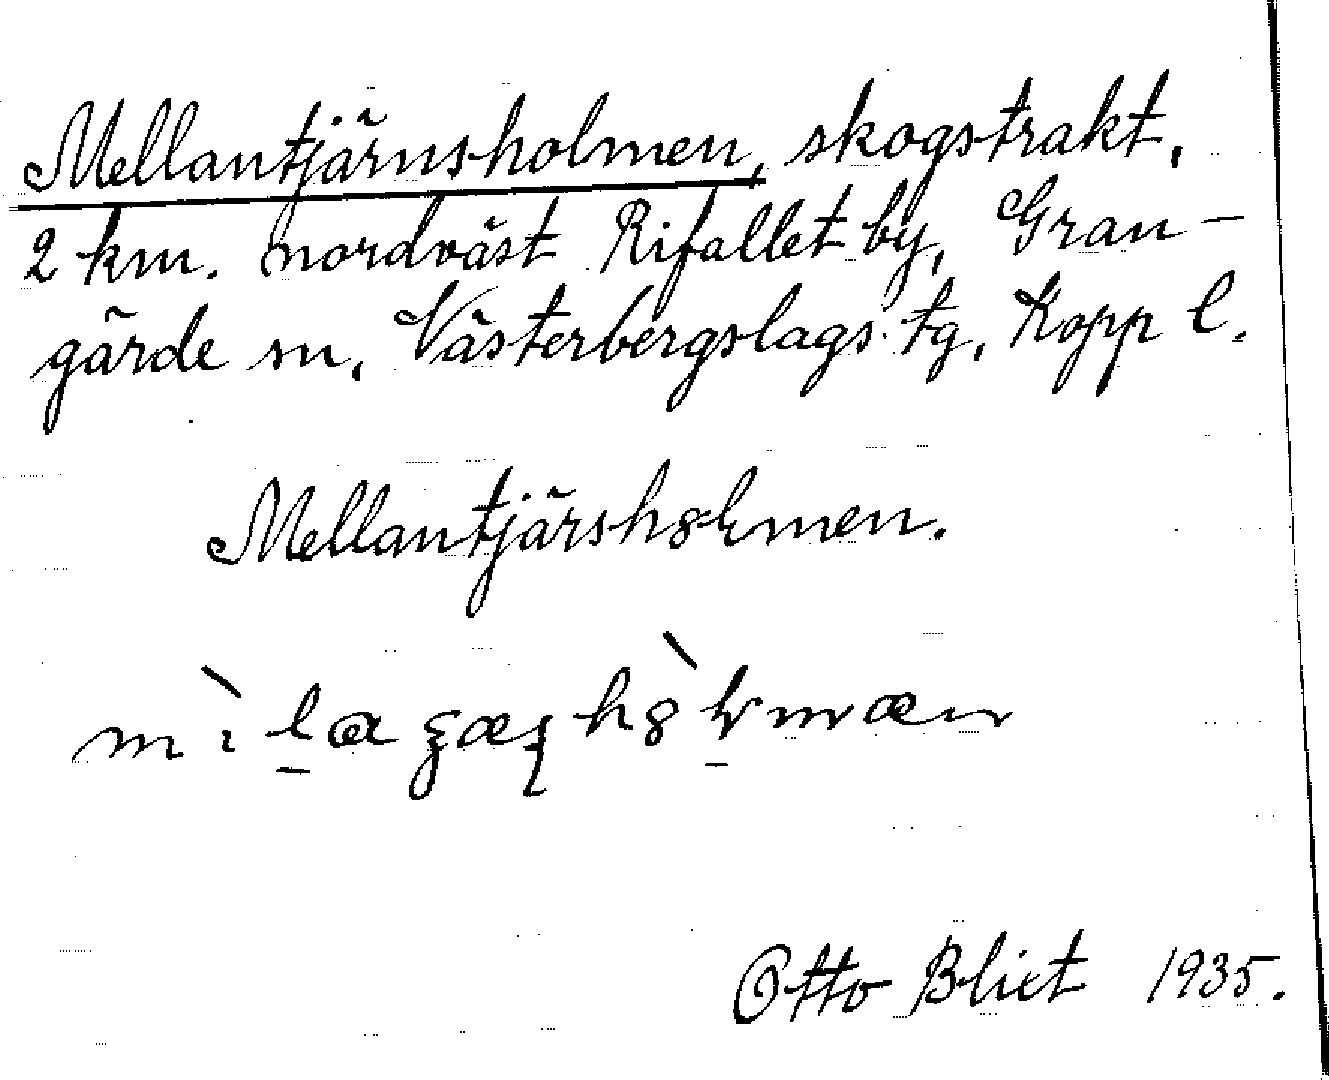 Mellantjärnsholmen, skogstrakt,
2 km. nordväst Rifallet by, Gran-
gärde sn, Västerbergslags tg, Kopp l.
Mellantjärshȣɫmen.
Otto Blixt 1935.